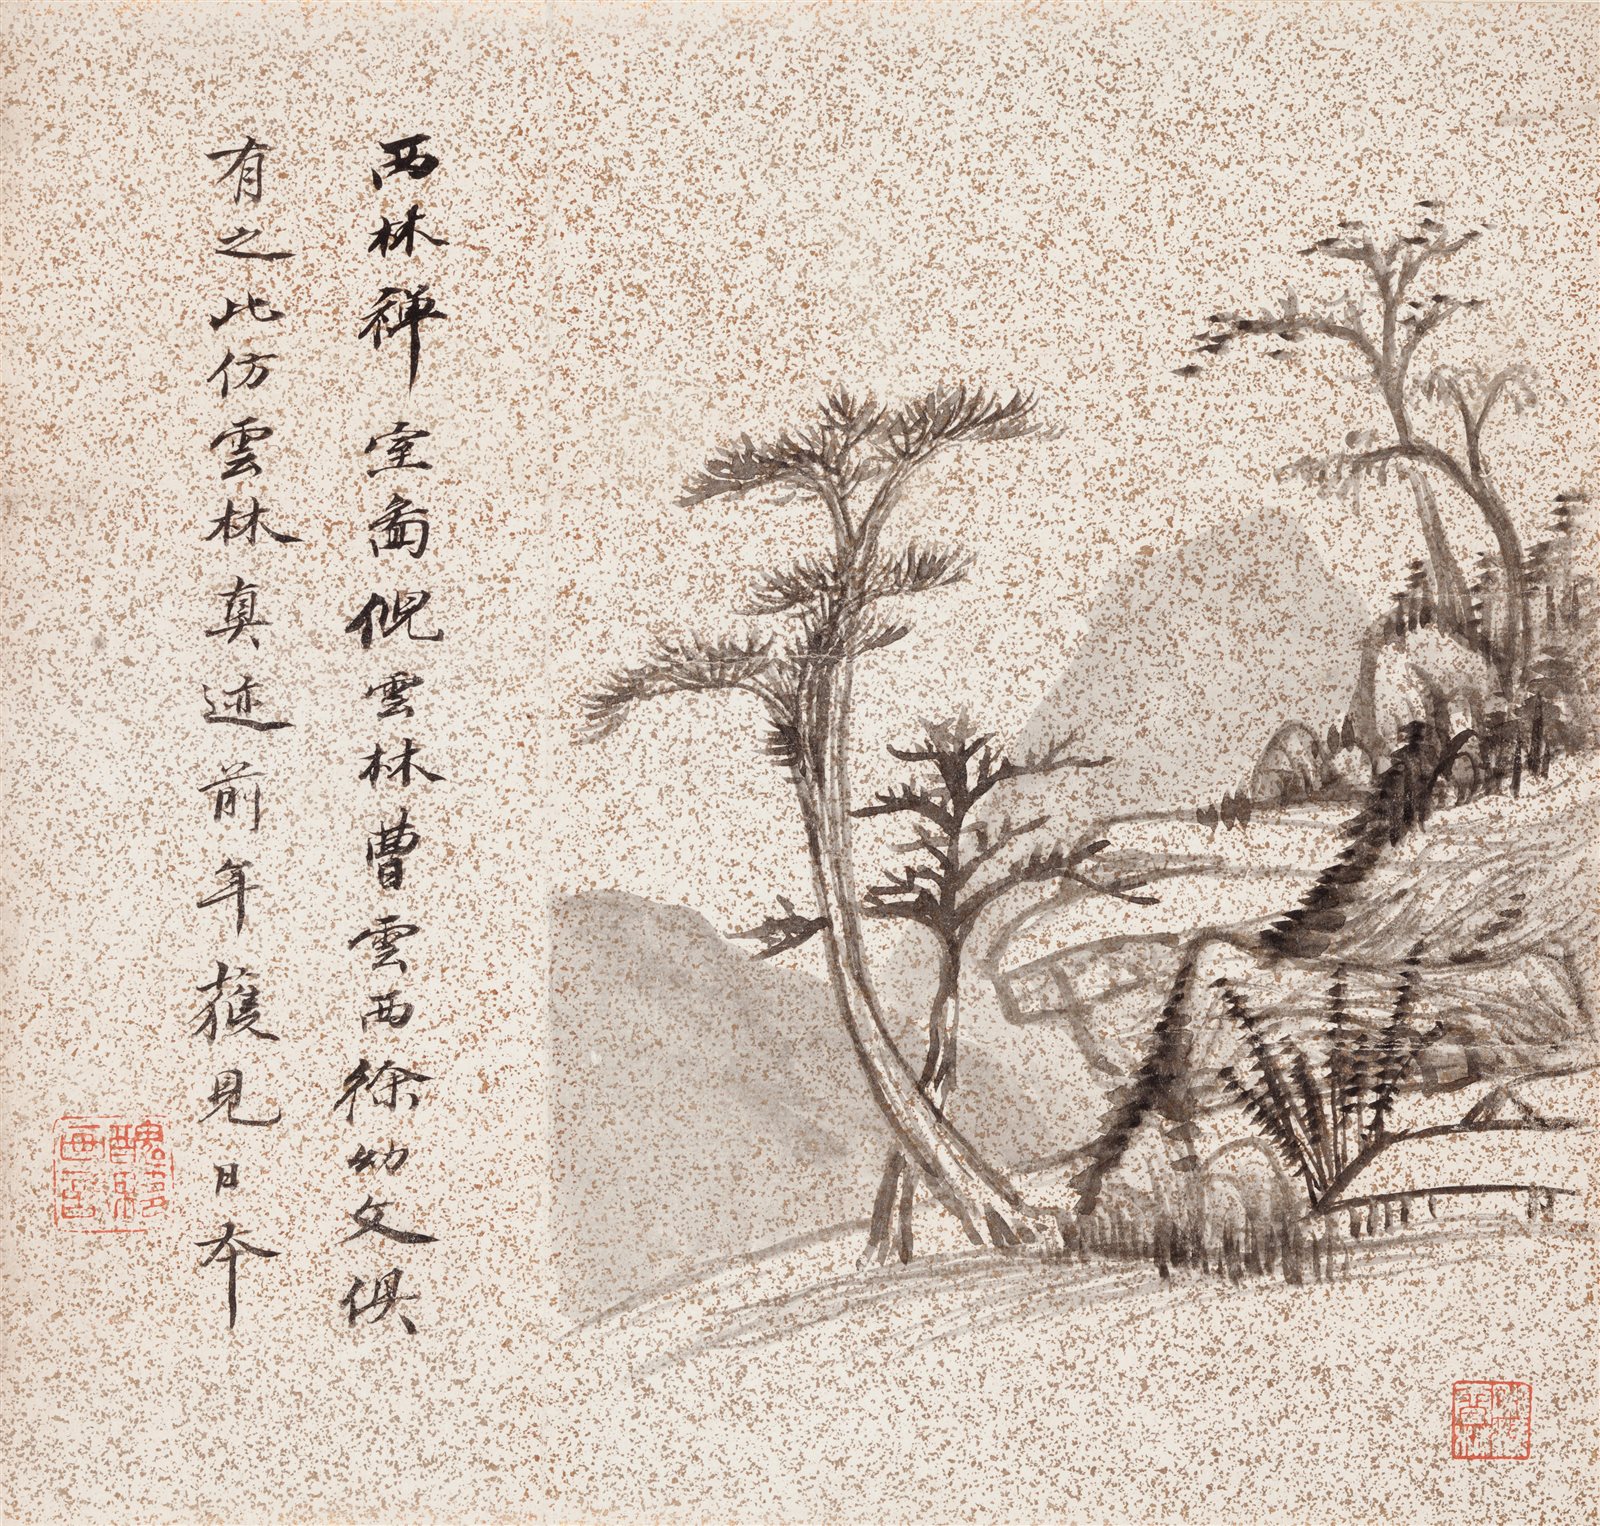 西林禅室啚倪雲林曹雲西徐幼文俱
有之此仿雲林真迹前年獲見日本